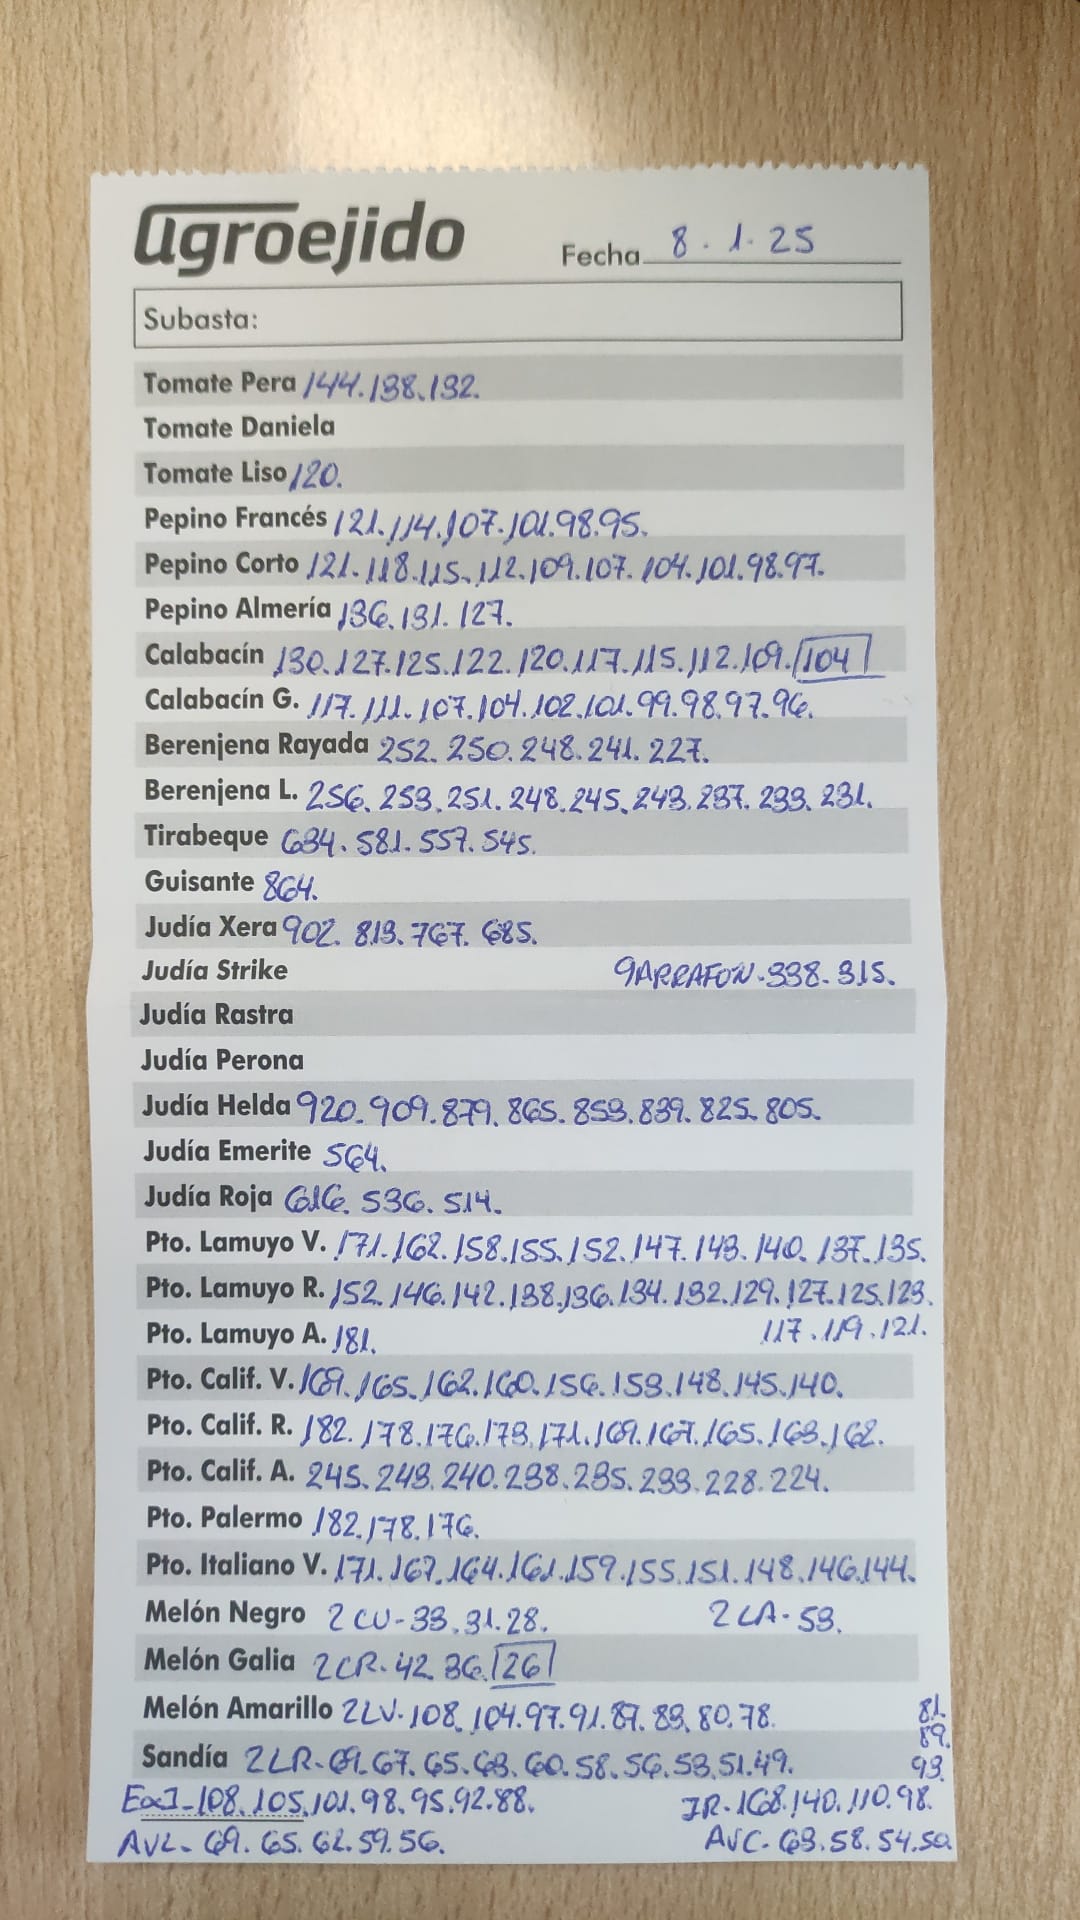 agroejido
Fecha 8.1.25
Subasta:
Tomate Pera 144.138.132.
Tomate Daniela
Tomate Liso 120.
Pepino Francés 121.114.107.101.98.95.
Pepino Corto 121.118.115.112.109.107.104.101.98.97.
Pepino Almería 136.131.127.
Calabacín 130.127.125.122.120.117.115.112.109.104
Calabacín G. 117.111.107.104.102.101.99.98.97.96.
Berenjena Rayada 252.250.248.241.227.
Berenjena L. 256.253.251.248.245.243.237.233.231.
Tirabeque 634.581.557.545.
Guisante 864.
Judía Xera 902.813.767.685.
Judía Strike GARRAFON-338.315.
Judía Rastra
Judía Perona
Judía Helda 920.909.879.865.853.839.825.805.
Judía Emerite 564.
Judía Roja 616.536.514.
Pto. Lamuyo V. 171.162.158.155.152.147.143.140.137.135.
Pto. Lamuyo R. 152.146.142.138.136.134.132.129.127.125.123.
Pto. Lamuyo A. 181. 117.119.121.
Pto. Calif. V. 169.165.162.160.156.153.148.145.140.
Pto. Calif. R. 182.178.176.173.171.169.167.165.163.162.
Pto. Calif. A. 245.243.240.238.235.233.228.224.
Pto. Palermo 182.178.176.
Pto. Italiano V. 171.167.164.161.159.155.151.148.146.144.
Melón Negro 2CU-33.31.28. 2LA-53.
Melón Galia 2CR-42.36.26
Melón Amarillo 2LV-108.104.97.91.87.83.80.78. 81.
89.
Sandía 2LR-69.67.65.63.60.58.56.53.51.49. 93.
108.105.101.98.95.92.88. JR-168.140.110.98.
AVL-69.65.62.59.56. AVC-63.58.54.50.